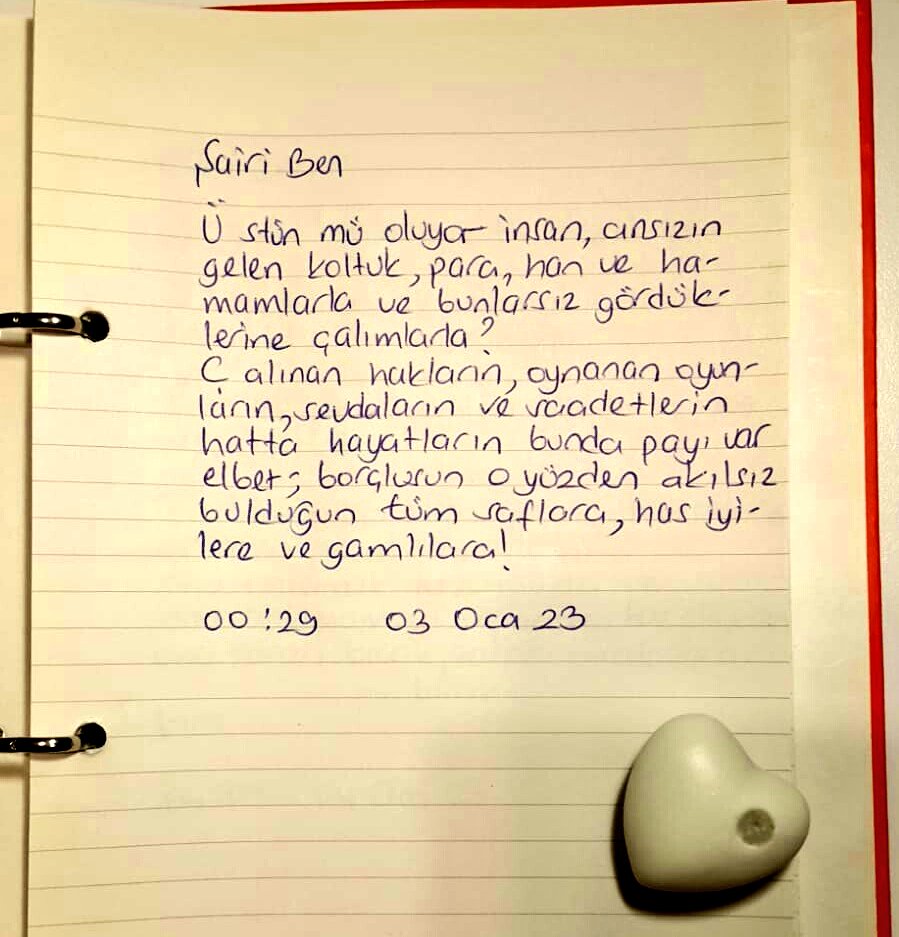 Şairi Ben
Ü stün mü oluyor insan, ansızın
gelen koltuk, para, han ve ha-
mamlarla ve bunlarsız gördük-
lerine çalımlarla?
Ç alınan hakların, oynanan oyun-
ların, sevdaların ve saadetlerin
hatta hayatların bunda payı var
elbet; borçlusun o yüzden akılsız
bulduğun tüm saflara, has iyi-
lere ve gamlılara!
00:29 03 Oca 23